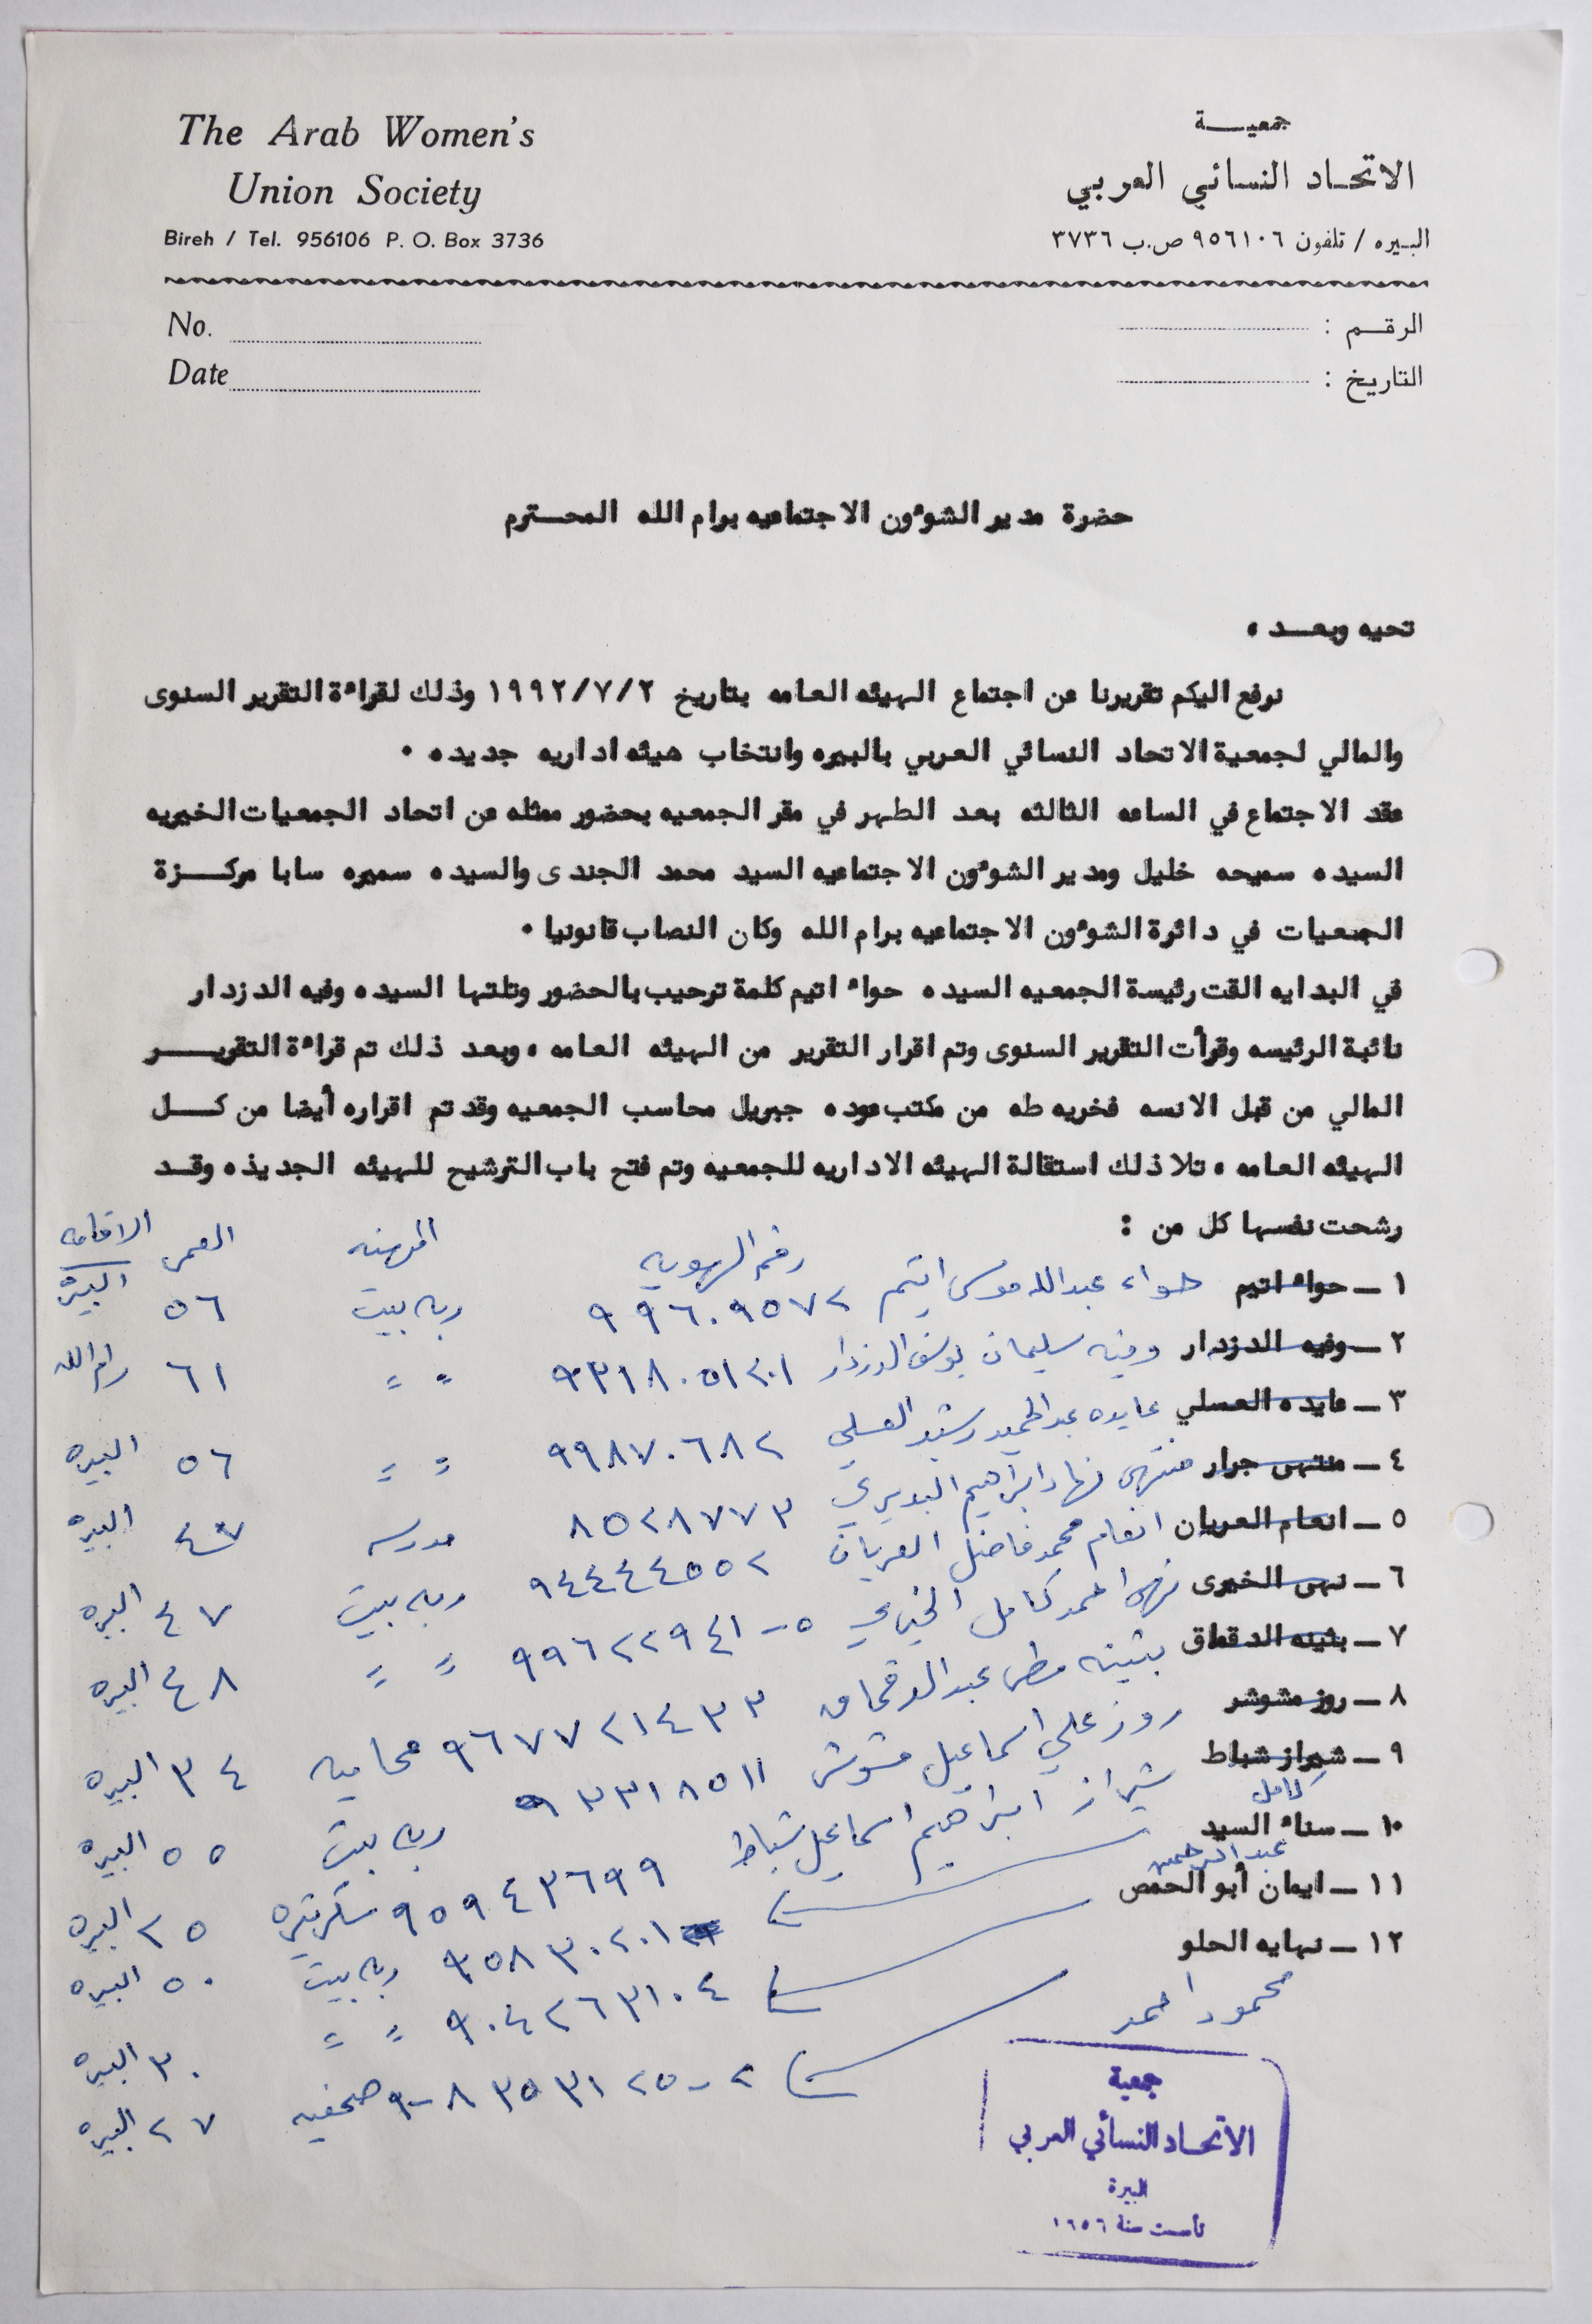 The Arab Women's
Union Society
Bireh / Tel. 956106 P. O. Box 3736
جمعيـــة
الاتحـاد النسـائي العربـي
البـيره / تلفون ٩٥٦١٠٦ ص.ب ٣٧٣٦
No.
Date
الرقـــم :
التاريـخ :
حضرة مدير الشوءون الاجتماعيه برام الله المحـــترم
تحيه وبعـــد ،
نرفع اليكم تقريرنا عن اجتماع الهيئه العامه بتاريخ ١٩٩٢/٧/٢ وذلك لقراءة التقرير السنوى
والمالي لجمعية الاتحاد النسائي العربي بالبيره وانتخاب هيئه اداريه جديده .
عقد الاجتماع في الساعه الثالثه بعد الطهر في مقر الجمعيه بحضور ممثله عن اتحاد الجمعيات الخيريه
السيده سميحه خليل ومدير الشوءون الاجتماعيه السيد محمد الجندى والسيده سميره سابا مركـــزة
الجمعيات في دائرة الشوءون الاجتماعيه برام الله وكان النصاب قانونيا .
في البدايه القت رئيسة الجمعيه السيده حواء اتيم كلمة ترحيب بالحضور وتلتها السيده وفيه الدزدار
نائبة الرئيسه وقرأت التقرير السنوى وتم اقرار التقرير من الهيئه العامه ، وبعد ذلك تم قراءة التقريـــر
المالي من قبل الانسه فخريه طه من مكتب عوده جبريل محاسب الجمعيه وقد تم اقراره أيضا من كـــل
الهيئه العامه ، تلا ذلك استقالة الهيئه الاداريه للجمعيه وتم فتح باب الترشيح للهيئه الجديذه وقــد
رشحت نفسها كل من :
رقم الهويه المهنه العمر الاقامه
١ ــ حواء اتيم حواء عبدالله موسى اتيم ٩٩٦٠٩٥٧٢ ربه بيت ٥٦ البيره
٢ ــ وفيه الدزدار وفيه سليمان يوسف الدزدار ٩٣١٨٠٥١٢٠١ " " ٦١ رام الله
٣ ــ عايده العسلي عايده عبدالحميد رشيد العسلي ٩٩٨٧٠٦٨٢ " " ٥٦ البيره
٤ ــ منتهى جرار منتهى ابراهيم ٨٥٢٨٧٧٣ مدرسه البيره
٥ ــ انعام العريان انعام محمد فاضل العريان ٩٤٤٤٤٥٥٢ ربه بيت ٤٧ البيره
٦ ــ نهى الخيرى نهى احمد كامل الخيري ٩٩٦٢٢٩٤١-٥ " " ٤٨ البيره
٧ ــ بثينه الدقماق بثينه عبد الدقماق ٩٦٧٧٢١٤٣٣ محاميه ٣٤ البيره
٨ ــ روز مشوشر روز علي اسماعيل مشوشر ٩٣٣١٨٥١١ ربه بيت ٥٥ البيره
٩ ــ شيراز شباط شيراز ابراهيم اسماعيل شباط ٩٥٩٤٣٦٩٩ سكرتيره ٢٥ البيره
كامل
١٠ ــ سناء السيد ٩٥٨٣٠٢٠١ ربه بيت ٥٠ البيره
عبد الرحمن
١١ ــ ايمان أبو الحمص ٩٠٤٢٦٣١٠٤ " " ٣٠ البيره
١٢ ــ نهايه الحلو ٩-٨٣٥٣١٢٥-٢ صحفيه ٢٧ البيره
محمود احمد
جمعية
الاتحـاد النسائي العربي
البيرة
تأسست سنة ١٩٥٦